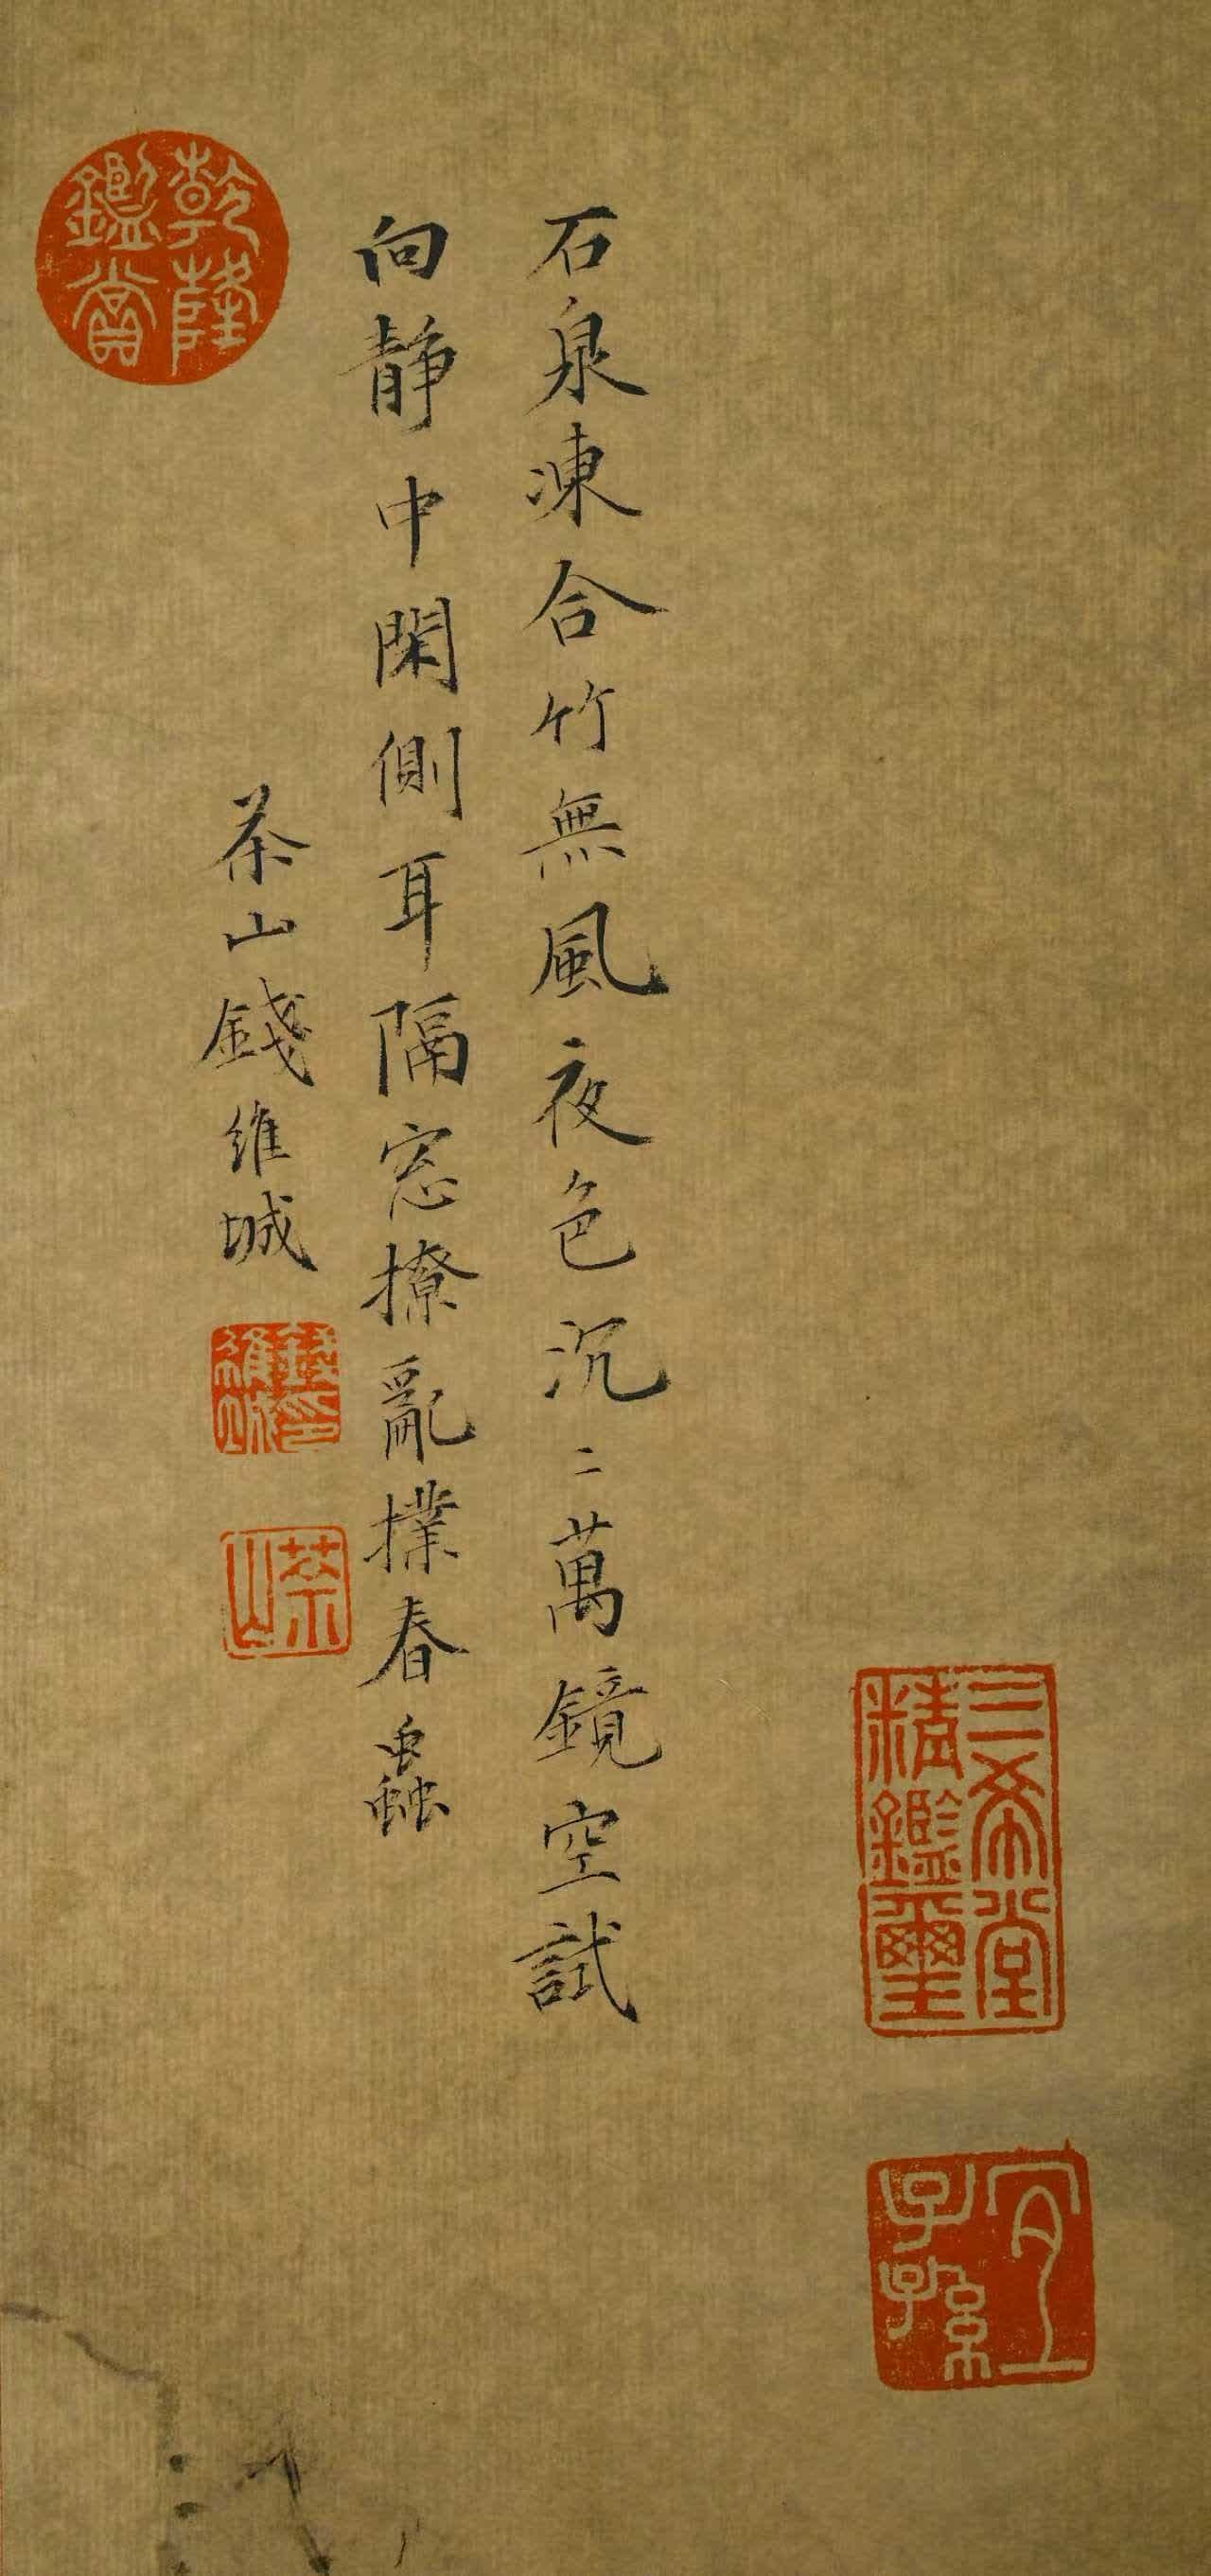 三希堂
精鑑璽
宜
子孫
石泉凍合竹無風夜色沉二萬鏡空試
向靜中閑側耳隔窓撩亂撲春蟲
茶山錢維城
錢印
維城
茶山
乾隆
鑑賞